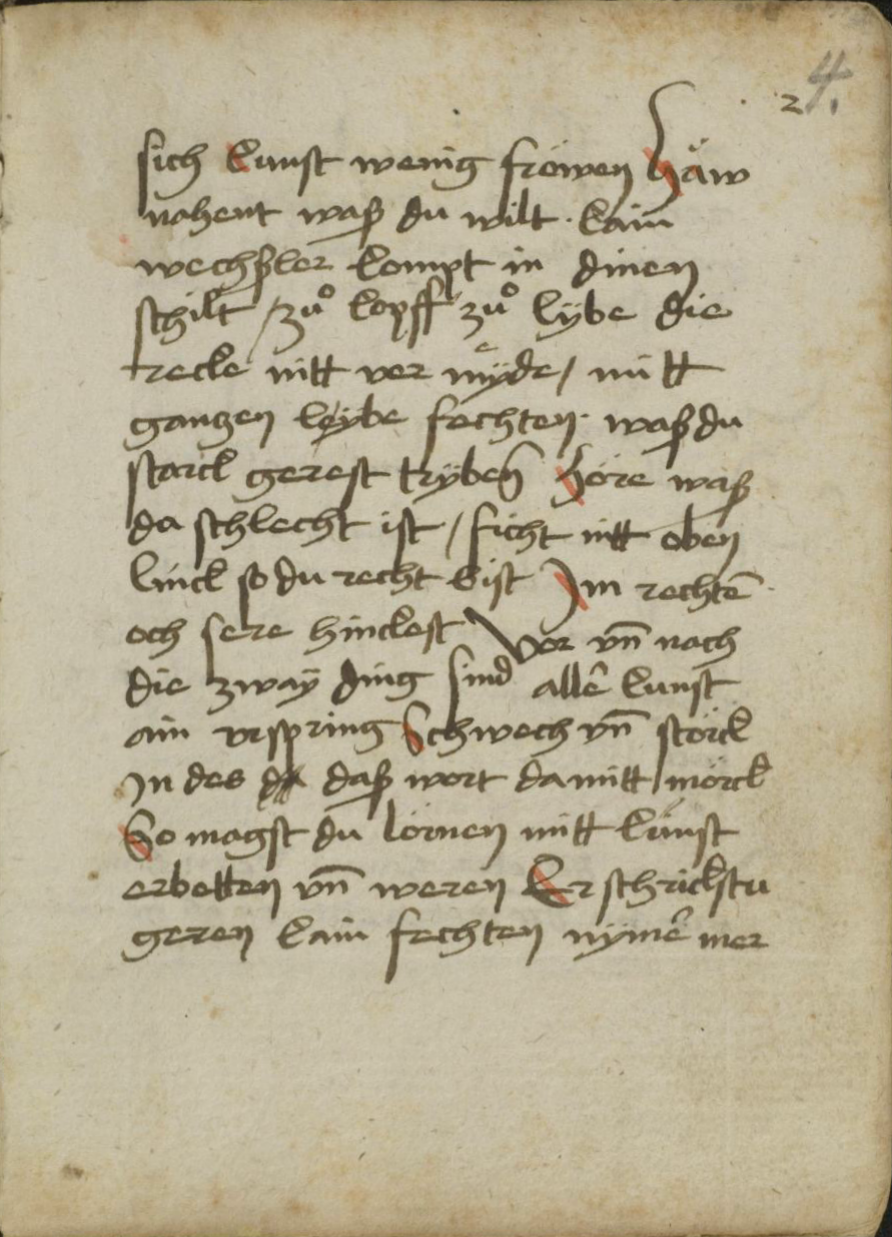 4.
2
sich kunst wenig fröwen häw
nahent waß du wilt · kain
wechßler kompt in dinen
schilt / zuͦ kopff zuͦ lybe die
zecke nitt ver myͤde / mitt
ganzen leybe fechten · waß du
starck gerest tryben̄ höre waß
da schlecht ist / ficht nitt oben
linck so du recht bist Im rechtē
och sere hinckest Vor vn̄ nach
die zway ding sind allē kunst
ain vrspring Schwech vn̄ störck
In des daß wort damitt mörck
So magst du lörnen mitt kunst
erbetten vn̄ weren Erschrickstu
geren kain fechten nymē mer